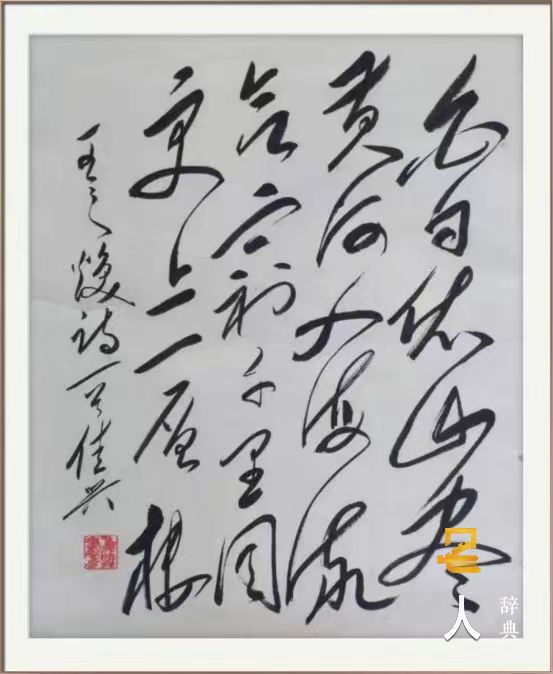 白日依山尽
黄河入海流
欲窮千里目
更上一层楼
王之焕诗一首佳兴
名人
辞典